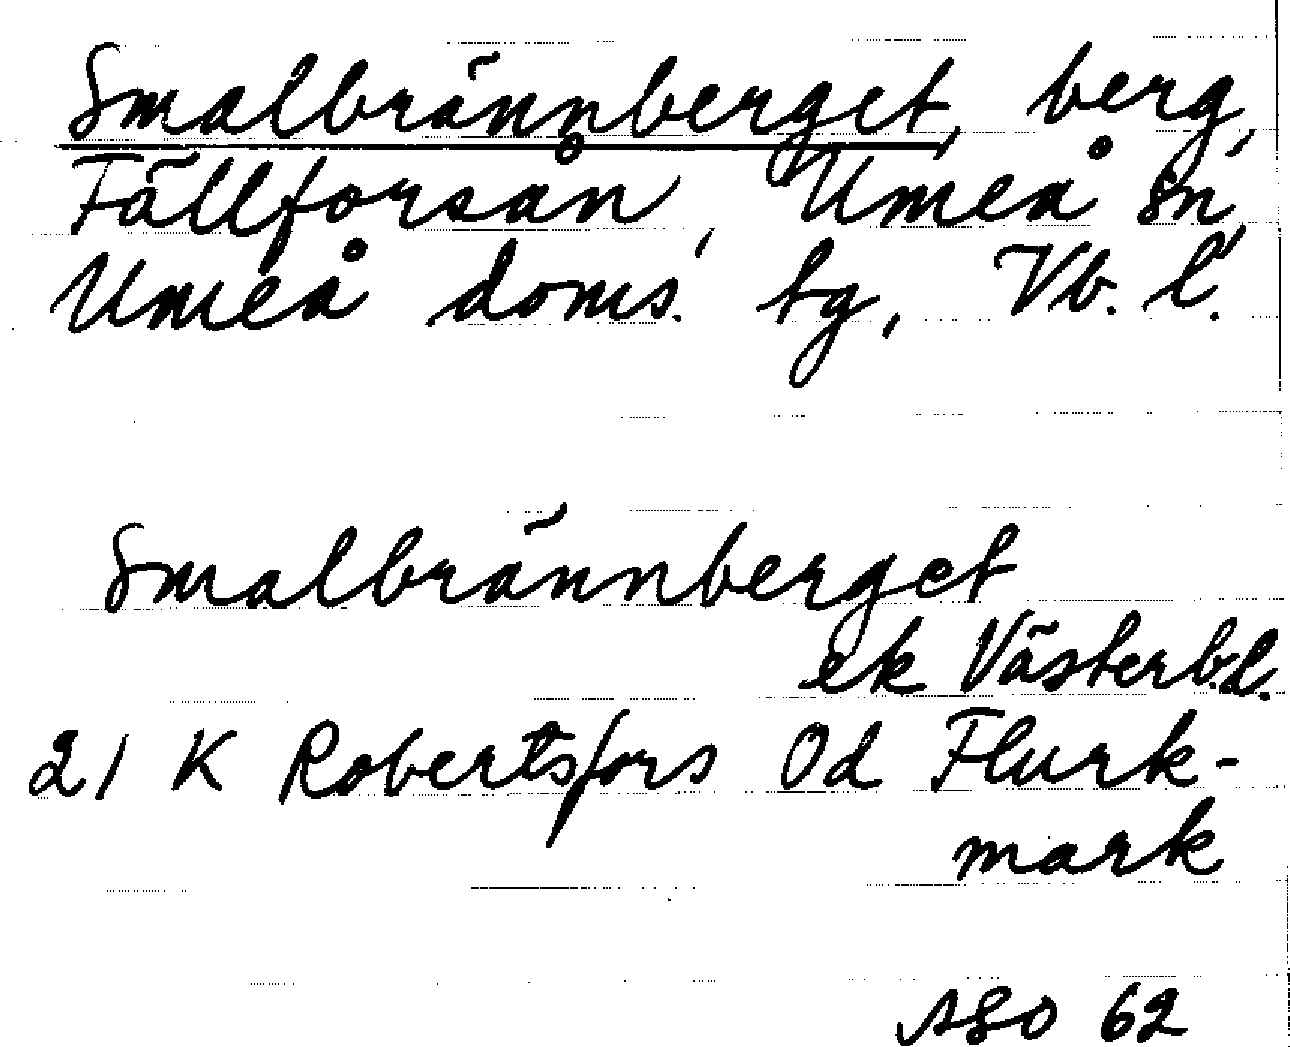 Smalbrännberget, berg,
Fällforsån, Umeå sn,
Umeå doms. tg, Vb. l.
Smalbrännberget
ek Västerb.l.
21 K Robertsfors Od Flurk-
mark
ASO 62